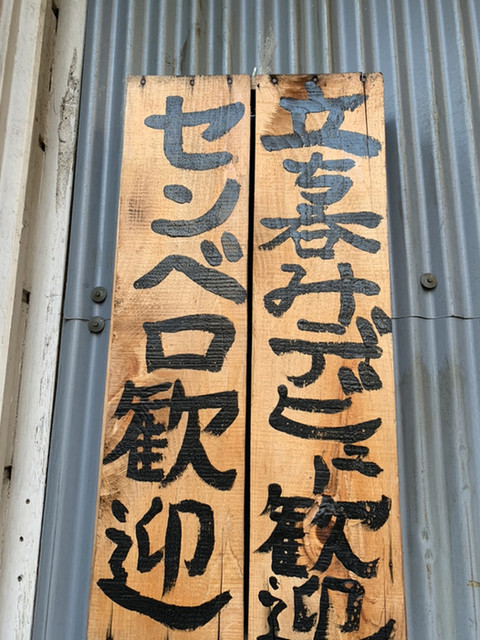 立ち呑みデビュー歓迎
センベロ歓迎